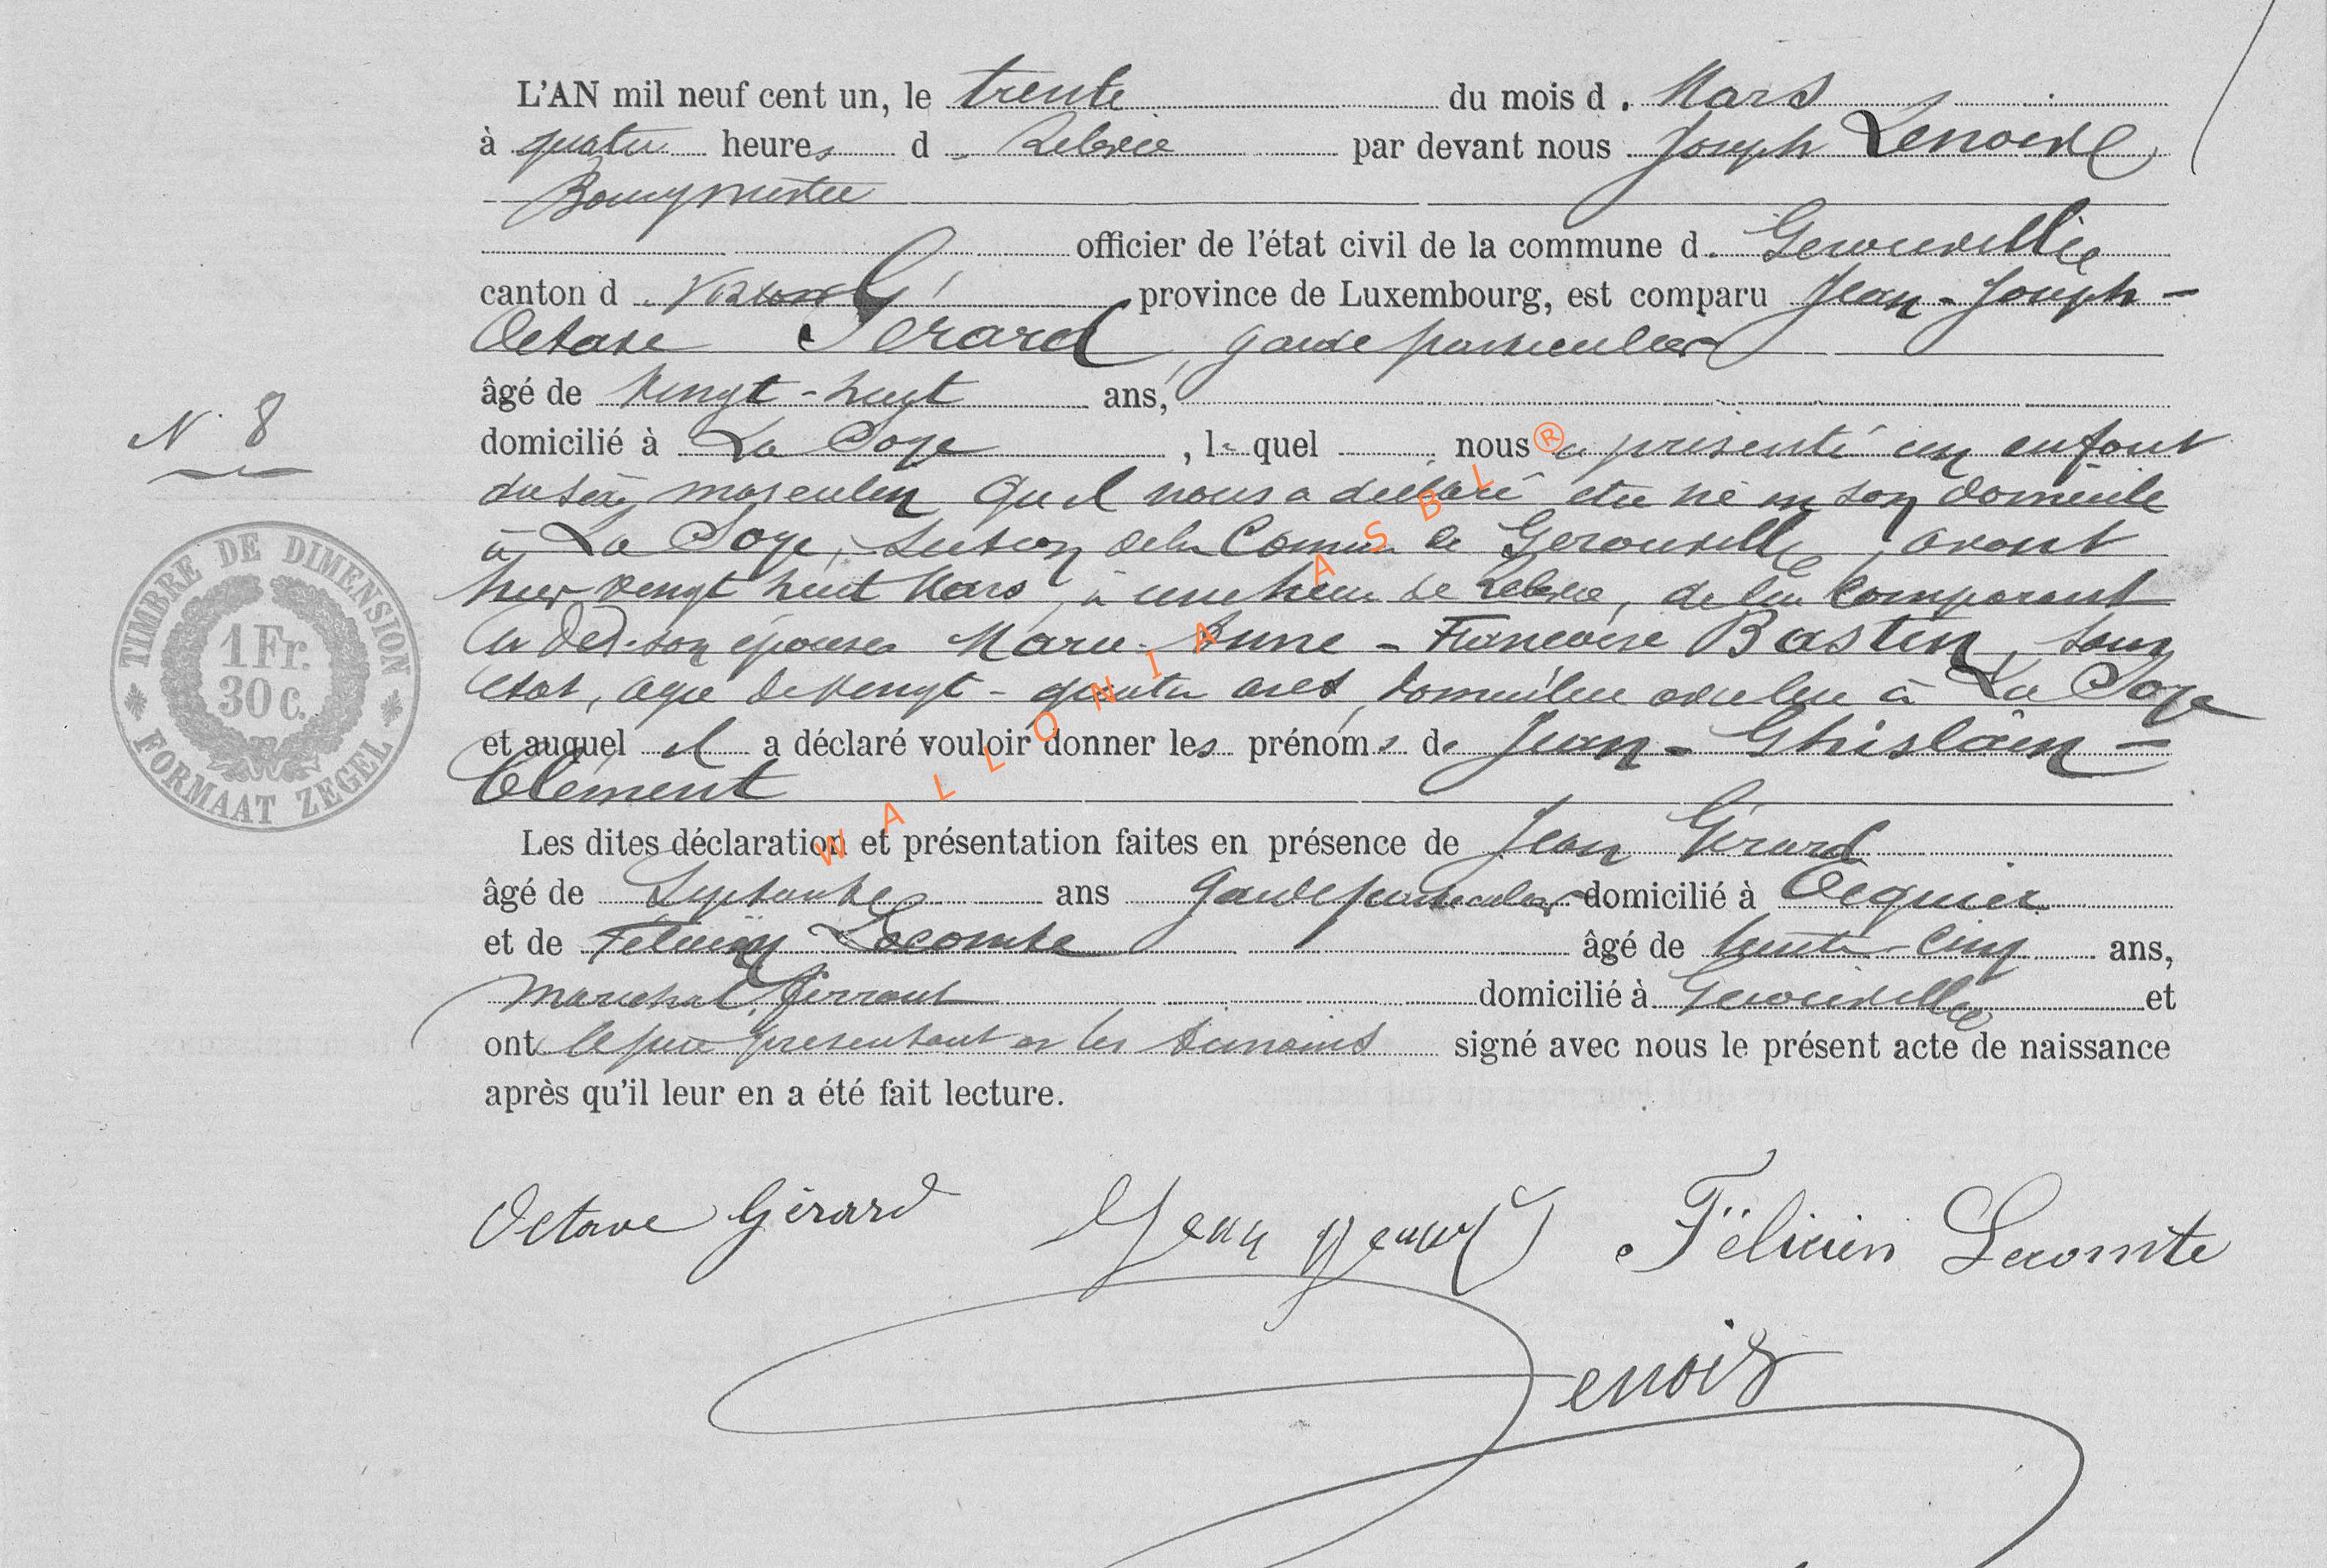 L'AN mil neuf cent un, le trente du mois d. Mars
à quatre heures d. Relevée par devant nous Joseph Lenoir
Bourgmestre
officier de l'état civil de la commune d. Gerouville
canton d. Virton province de Luxembourg, est comparu Jean-Joseph-
Octave Gérard, garde particulier
âgé de vingt-huit ans,
N. 8
domicilié à La Soye, lequel nous a présenté un enfant
du sexe masculin qu'il nous a déclaré etre né en son domicile
à La Soye, section de la Commune de Gerouville, avant
hier vingt huit Mars, à une heure de Relevée, de lui Comparant
et de son épouse Marie-Anne-Francoise Bastin, sans
état, agée de vingt-quatre ans, domiciliée avec lui à La Soye
et auquel il a déclaré vouloir donner les prénoms de Jean-Ghislain-
Clément
Les dites déclaration et présentation faites en présence de Jean Gérard
âgé de Septante ans Garde particulier domicilié à Ocquier
et de Félicien Lecomte âgé de trente-cinq ans,
Marechal ferrant domicilié à Gerouville et
ont le père présentant et les témoins signé avec nous le présent acte de naissance
après qu'il leur en a été fait lecture.
TIMBRE DE DIMENSION
1 Fr.
30 c.
FORMAAT ZEGEL
WALLONIA ASBL ®
Octave Gérard Jean Gerard Félicien Lecomte
Lenoir